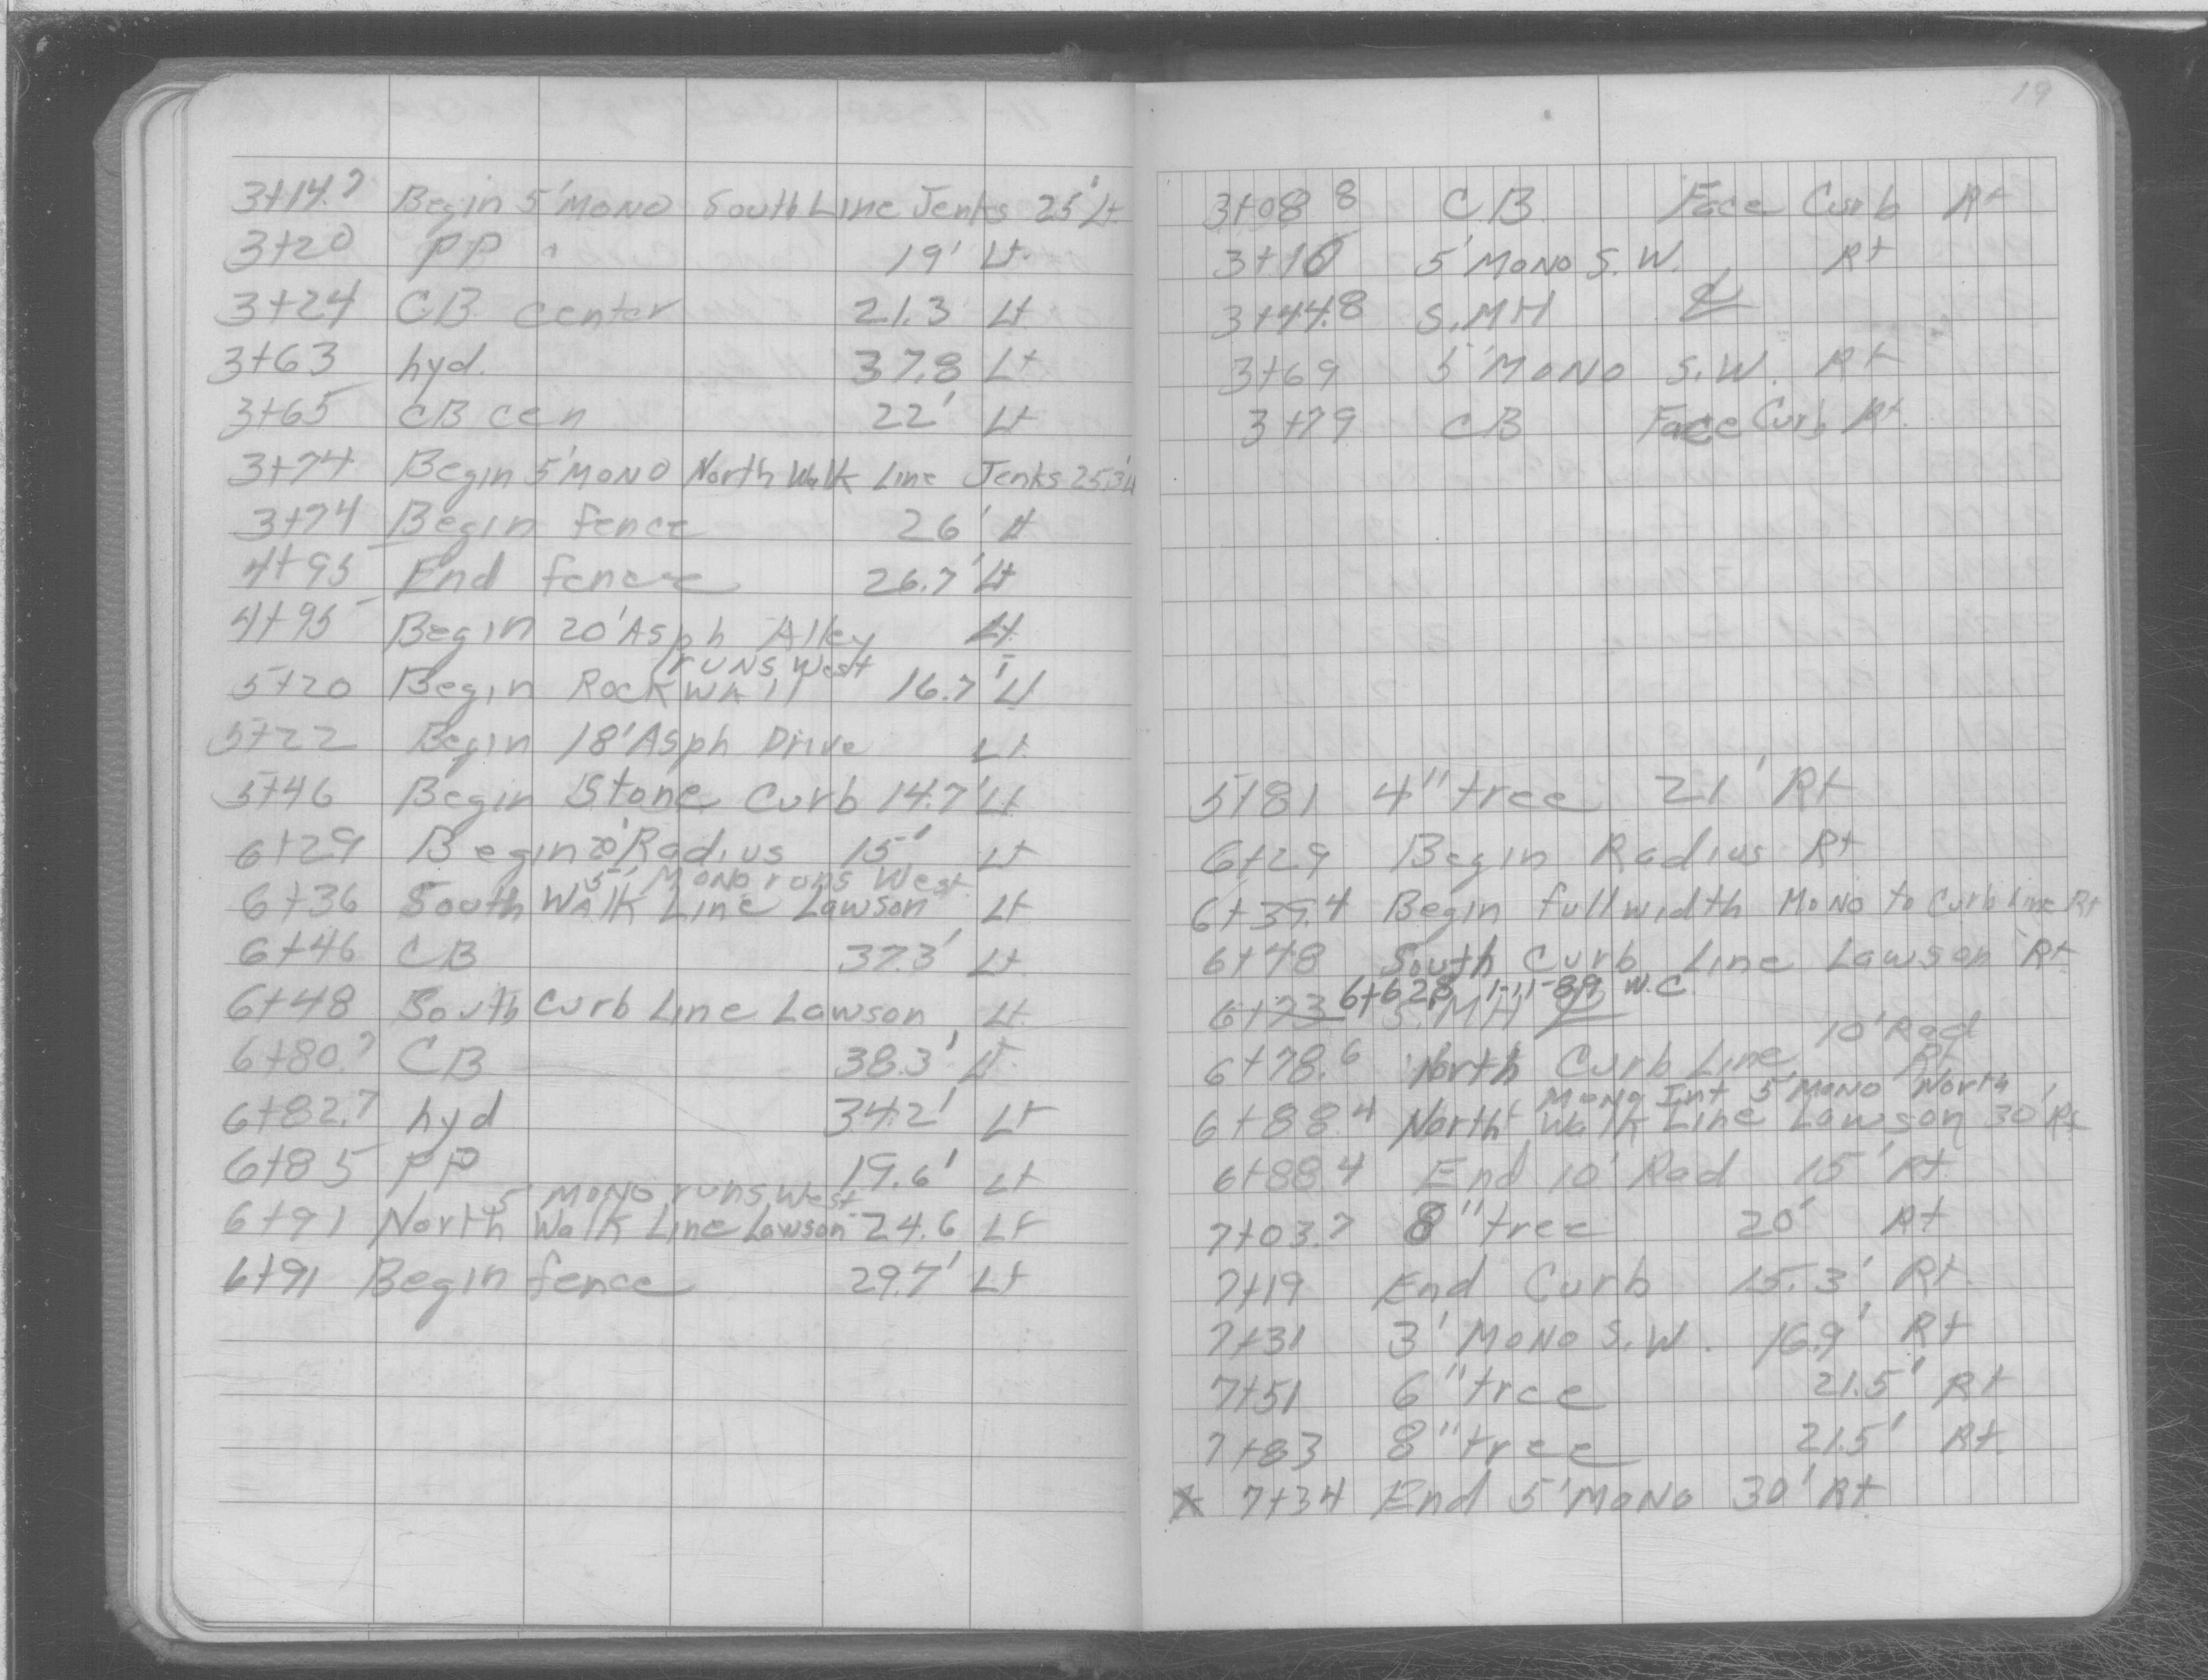 3+14.7 Begin 5' MONO South Line Jenks 25' Lt
3+20 PP 19' Lt
3+24 CB center 21.3 Lt
3+63 hyd. 37.8 Lt
3+65 CB cen 22' Lt
3+74 Begin 5' MONO North Walk Line Jenks 25.3' Lt
3+74 Begin fence 26' Lt
4+95 End fence 26.7' Lt
4+95 Begin 20' Asph Alley Lt
runs West
5+20 Begin Rock Wall 16.7' Lt
5+22 Begin 18' Asph Drive Lt
5+46 Begin Stone Curb 14.7' Lt
6+29 Begin 20' Radius 15' Lt
5' MONO runs West
6+36 South Walk Line Lawson Lt
6+46 CB 37.3' Lt
6+48 South Curb Line Lawson Lt
6+80.7 CB 38.3' Lt
6+82.7 hyd 34.2' Lt
6+85 PP 19.6' Lt
5' MONO runs West
6+91 North Walk Line Lawson 24.6 Lt
6+91 Begin fence 29.7' Lt
19
3+08.8 CB Face Curb Rt
3+10 5' MONO S.W. Rt
3+44.8 S.MH ℄
3+69 5' MONO S.W. Rt
3+79 CB Face Curb Rt.
5+81 4" tree 21' Rt
6+29 Begin Radius Rt
6+39.4 Begin full width MONO to Curb Line Rt
6+48 South Curb Line Lawson Rt
6+62.8 1-11-89 W.C.
6+73 S.MH ℄
10' Rad
6+78.6 North Curb Line Rt
MONO Int 5' MONO North
6+88.4 North Walk Line Lawson 30' Rt
6+88.4 End 10' Rad 15' Rt
7+03.7 8" tree 20' Rt
7+19 End Curb 15.3' Rt
7+31 3' MONO S.W. 16.9' Rt
7+51 6" tree 21.5' Rt
7+83 8" tree 21.5' Rt
x 7+34 End 5' MONO 30' Rt